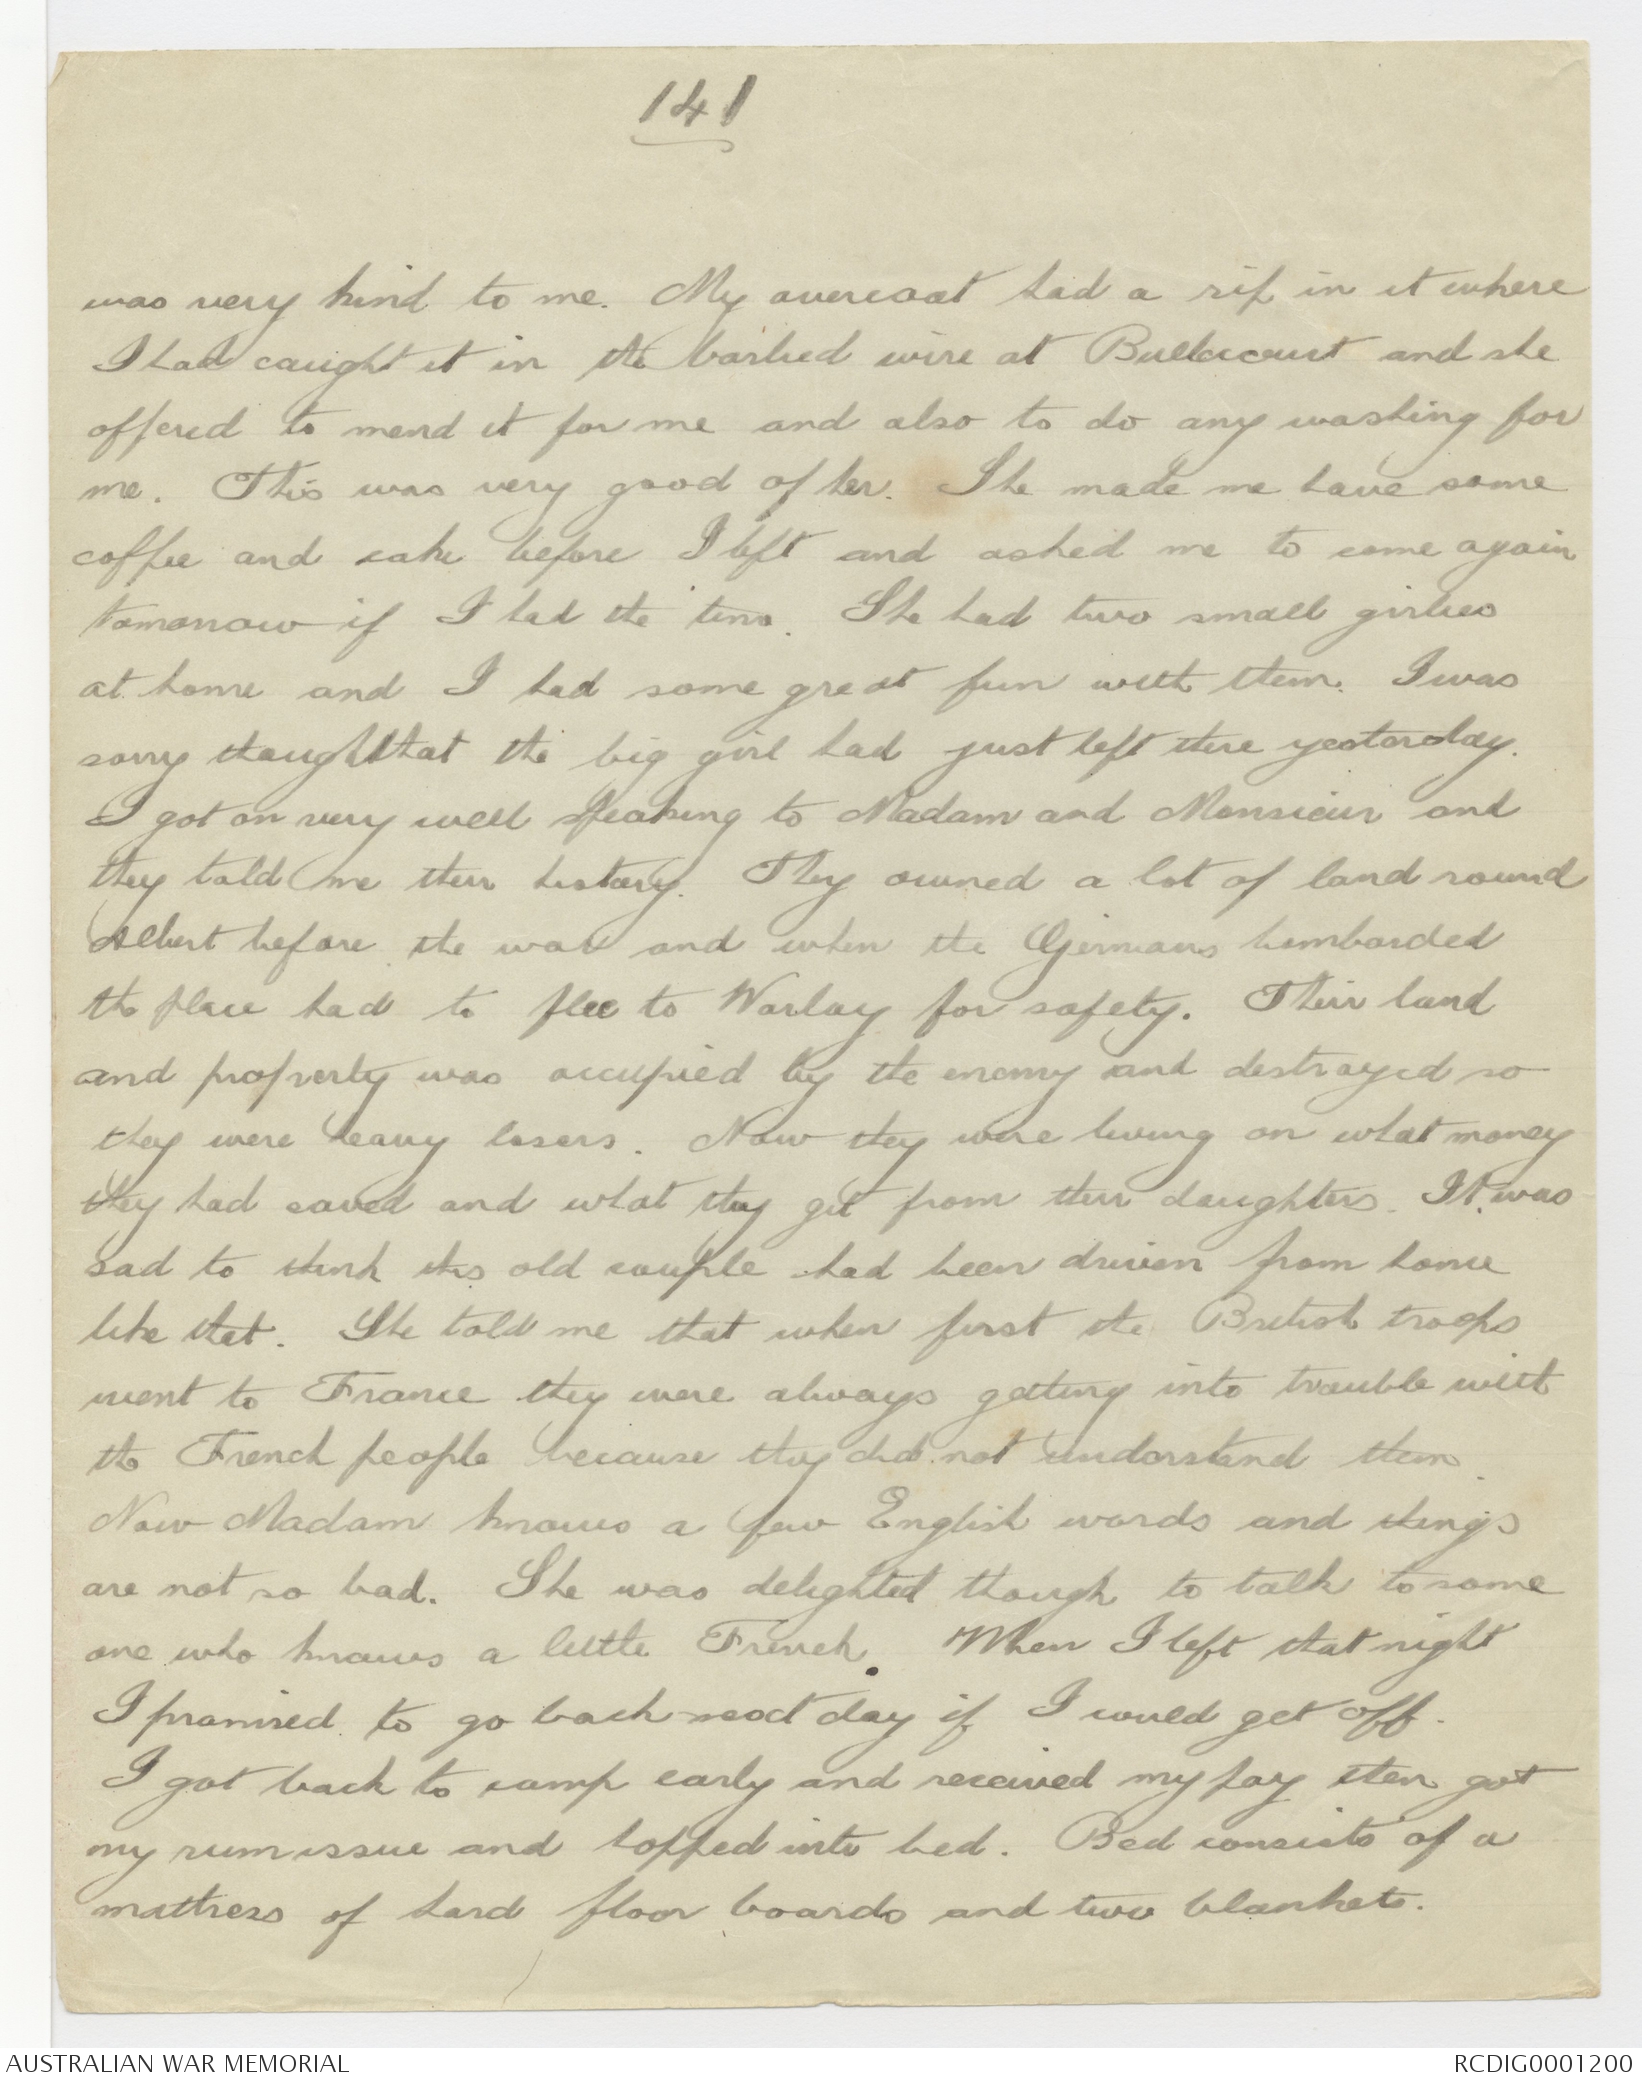 141
was very kind to me. My overcoat had a rip in it where
I had caught it in the barbed wire at Bullecourt and she
offered to mend it for me and also to do any washing for
me. This was very good of her. She made me have some
coffee and cake before I left and asked me to come again
tomorrow if I had the time. She had two small girlies
at home and I had some great fun with them. I was
sorry though that the big girl had just left there yesterday.
I got on very well speaking to Madam and Monsieur and
they told me their history. They owned a lot of land round
Albert before the war and when the Germans bombarded
the place had to flee to Warlay for safety. Their land
and property was occupied by the enemy and destroyed so
they were heavy losers. Now they were living on what money
they had saved and what they get from their daughters. It was
sad to think this old couple had been driven from home
like that. She told me that when first the British troops
went to France they were always getting into trouble with
the French people because they did not understand them.
Now Madam knows a few English words and things
are not so bad. She was delighted though to talk to some
one who knows a little French. When I left that night
I promised to go back next day if I could get off.
I got back to camp early and received my pay then got
my rum issue and hopped into bed. Bed consists of a
mattress of hard floor boards and two blankets.
AUSTRALIAN WAR MEMORIAL
RCDIG0001200